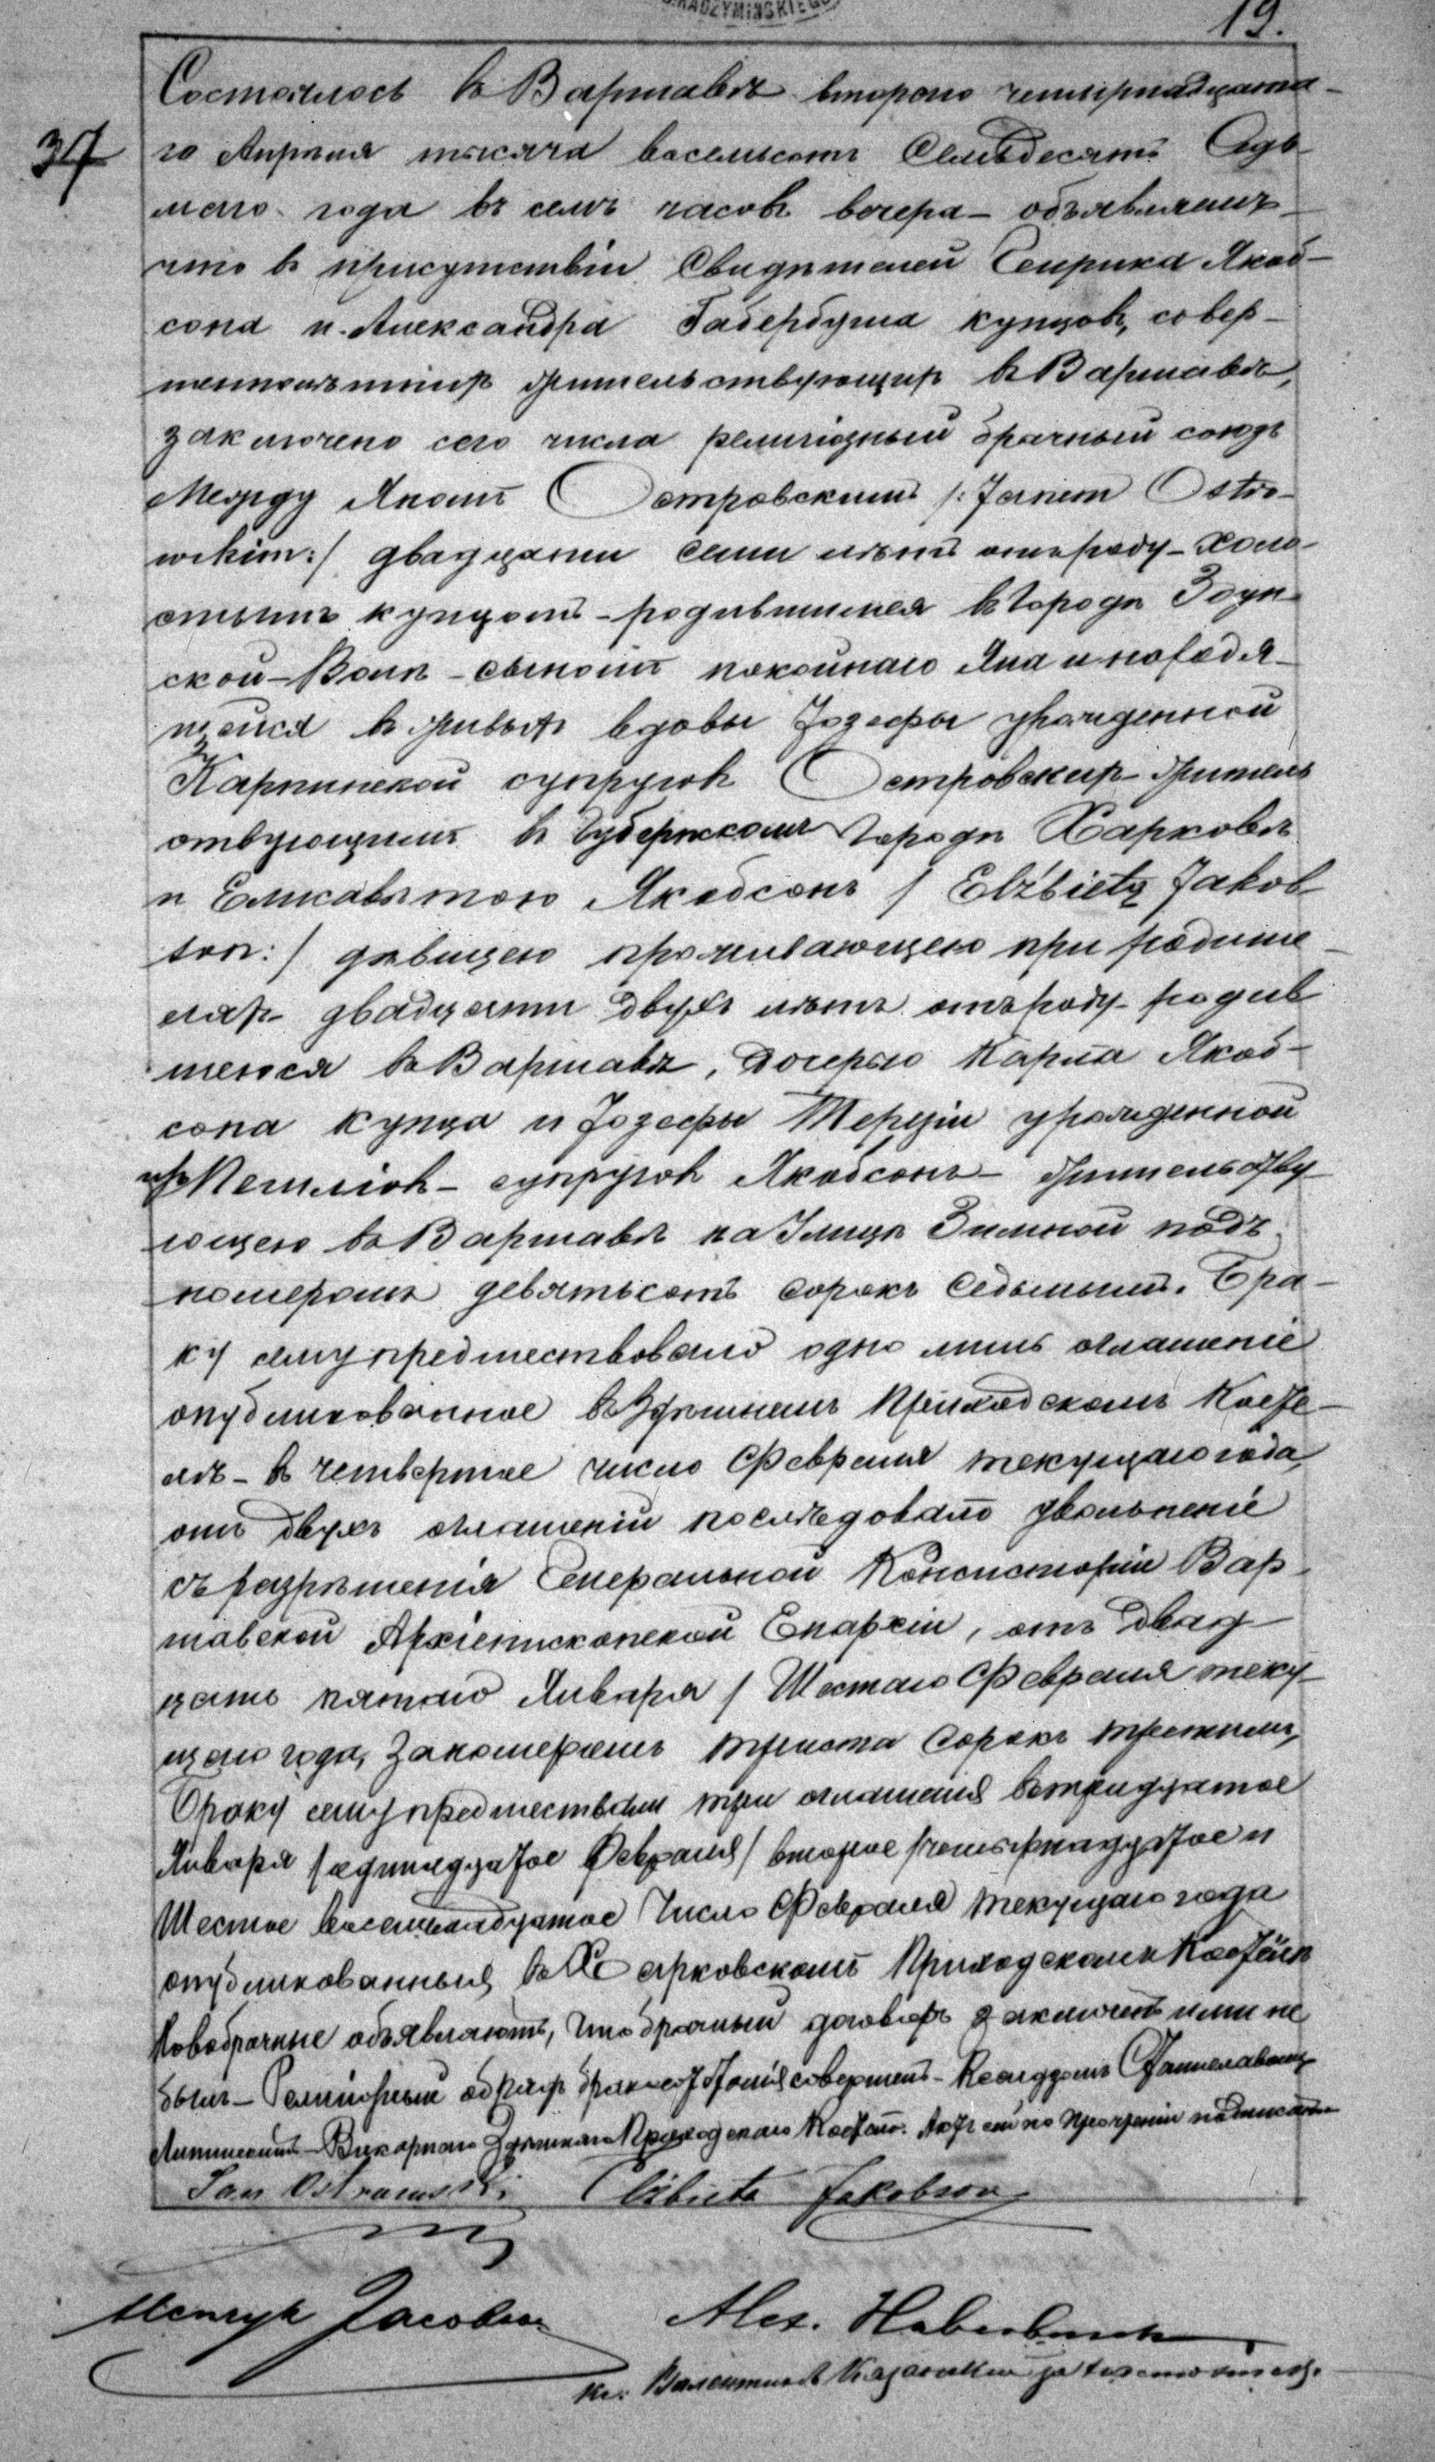 RADZYMIŃSKIEGO
19.
37
Состоялось въ Варшавѣ втораго четырнадцата-
го Апрѣля тысяча восемьсотъ Семьдесятъ Седь-
маго года въ семь часовъ вечера - объявляемъ
что въ присутствіи Свидѣтелей Генрика Якоб-
сона и Александра Габербуша купцовъ, совер-
шеннолѣтнихъ жительствующихъ въ Варшавѣ,
заключено сего числа религіозный брачный союзъ
Между Яномъ Островскимъ /: Janem Ostro-
wskim:/ двадцати семи лѣтъ отъ роду - Холо-
стымъ купцомъ - родившимся въ Городѣ Здун-
ской-Волѣ - сыномъ покойнаго Яна и находя-
щейся въ живыхъ вдовы Іозефы урожденной
Карпинской супруговъ Островскихъ - житель
ствующимъ въ Губернскомъ Городѣ Харковѣ
и Елисаветою Якобсонъ / Elżbietą Jakob
son:/ дѣвицею проживающею при родите-
ляхъ двадцати двухъ лѣтъ отъ роду - родив
шеюся въ Варшавѣ, Дочерью Карла Якоб-
сона купца и Іозефы Терезіи урожденной
супруговъ Якобсонъ - жительству-
ющею въ Варшавѣ на Улицѣ Зимной подъ
номеромъ девятьсотъ сорокъ седьмымъ. Бра-
ку сему предшествовало одно лишь оглашеніе
опубликованное въ здѣшнемъ Приходскомъ Косте-
лѣ - въ четвертое число Февраля текущаго года,
отъ двухъ оглашеній послѣдовало увольненіе
съ разрѣшенія Генеральной Консисторіи Вар-
шавской Архіепископской Епархіи, отъ Двад-
цать пятаго Января / Шестаго Февраля теку-
щаго года, за номеромъ триста сорокъ третьимъ,
Браку сему предшествовали три оглашенія въ тридцатое
Января / одинадцатое Февраля / второе / четырнадцатое и
Шестое восемнадцатое Число Февраля текущаго года
опубликованныя въ Харковскомъ Приходскомъ Костелѣ
Новобрачные объявляютъ, что брачный договоръ заключенъ ими не
былъ - Религіозный обрядъ бракосочтанія совершенъ - Ксендзомъ Станиславомъ
Викарнаго Здѣшняго Приходскаго Костела. Актъ сей по прочтеніи подписали
Jan Ostrowski Elżbieta Jakobson
Henryk Jacobson Alex. Haberbusch
Кс. Валентинъ